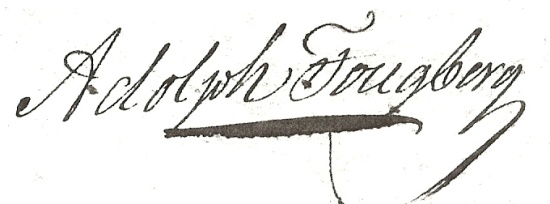 Adolph Fougberg